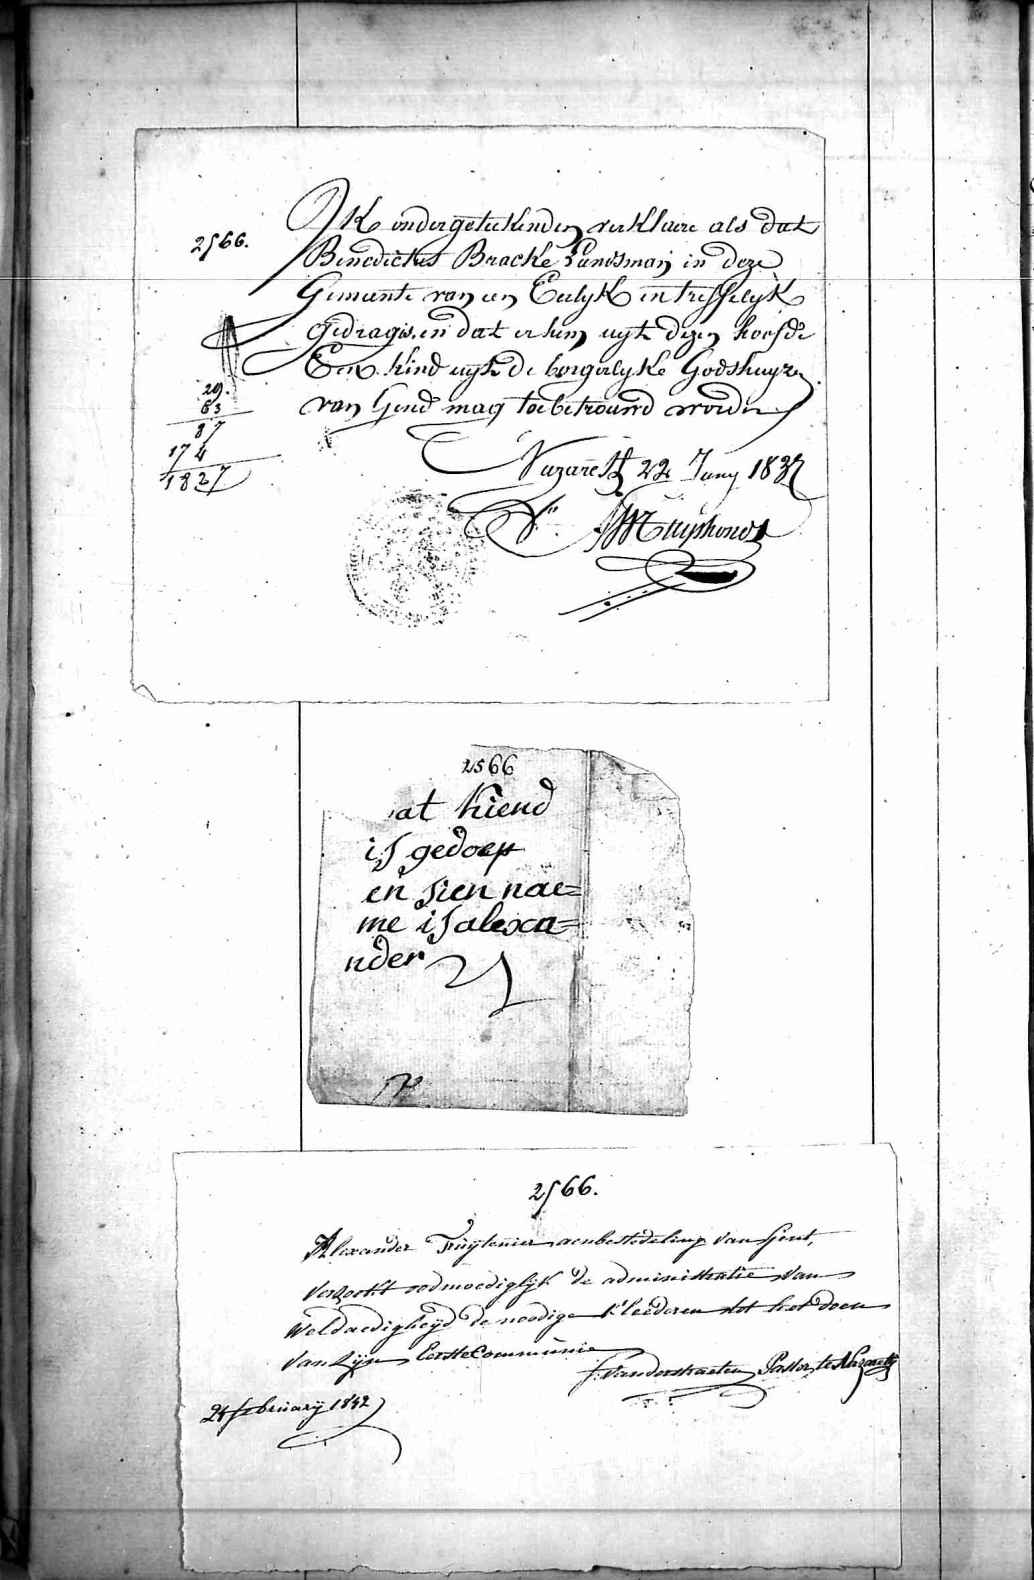 2566.
Ik ondergeteekenden verklaere als dat
Benedictus Bracke Landsman in deze
Gemeente van een Eerlyk en treffelyk
gedrag is, en dat er hem uyt dezen hoofde
Een kind uyt de borgerlyke Godshuyzen
van Gend mag toebetrouwd worden
29.
63
87
174
1827
Nazareth 22 Juny 1837
2566
at kiend
is gedoep
en sien nae=
me is alexa=
nder
2566.
Alexander Truÿlenier aenbestedeling van Gent,
verzoekt oodmoediglyk de administratie van
Weldaedigheÿd de noodige kleederen tot het doen
van zÿn Eerste Communie
f. Vanderstraeten Pastor te Nazareth
24 february 1842